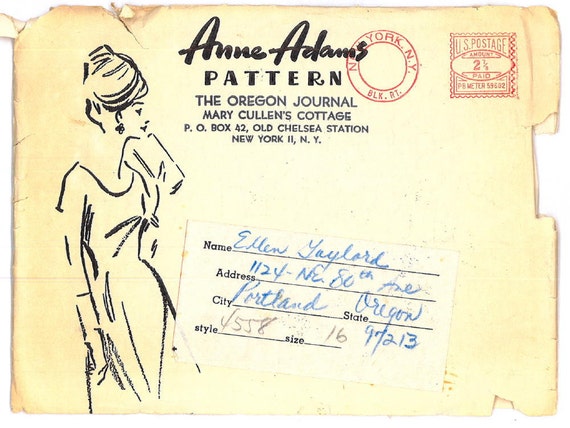 Anne Adams
PATTERN
THE OREGON JOURNAL
MARY CULLEN'S COTTAGE
P. O. BOX 42, OLD CHELSEA STATION
NEW YORK 11, N. Y.
NEW YORK, N.Y.
BLK. RT.
U.S. POSTAGE
AMOUNT
PAID
PB METER 59602
Name Ellen Gaylord
Address 1124 - N.E. 80th Ave
City Portland State Oregon
style 4558 size 16 97213